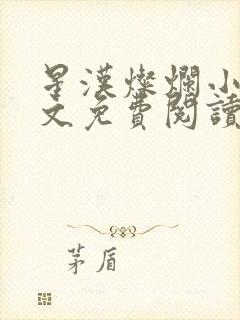 星漢燦爛小
文免費閱讀
茅盾